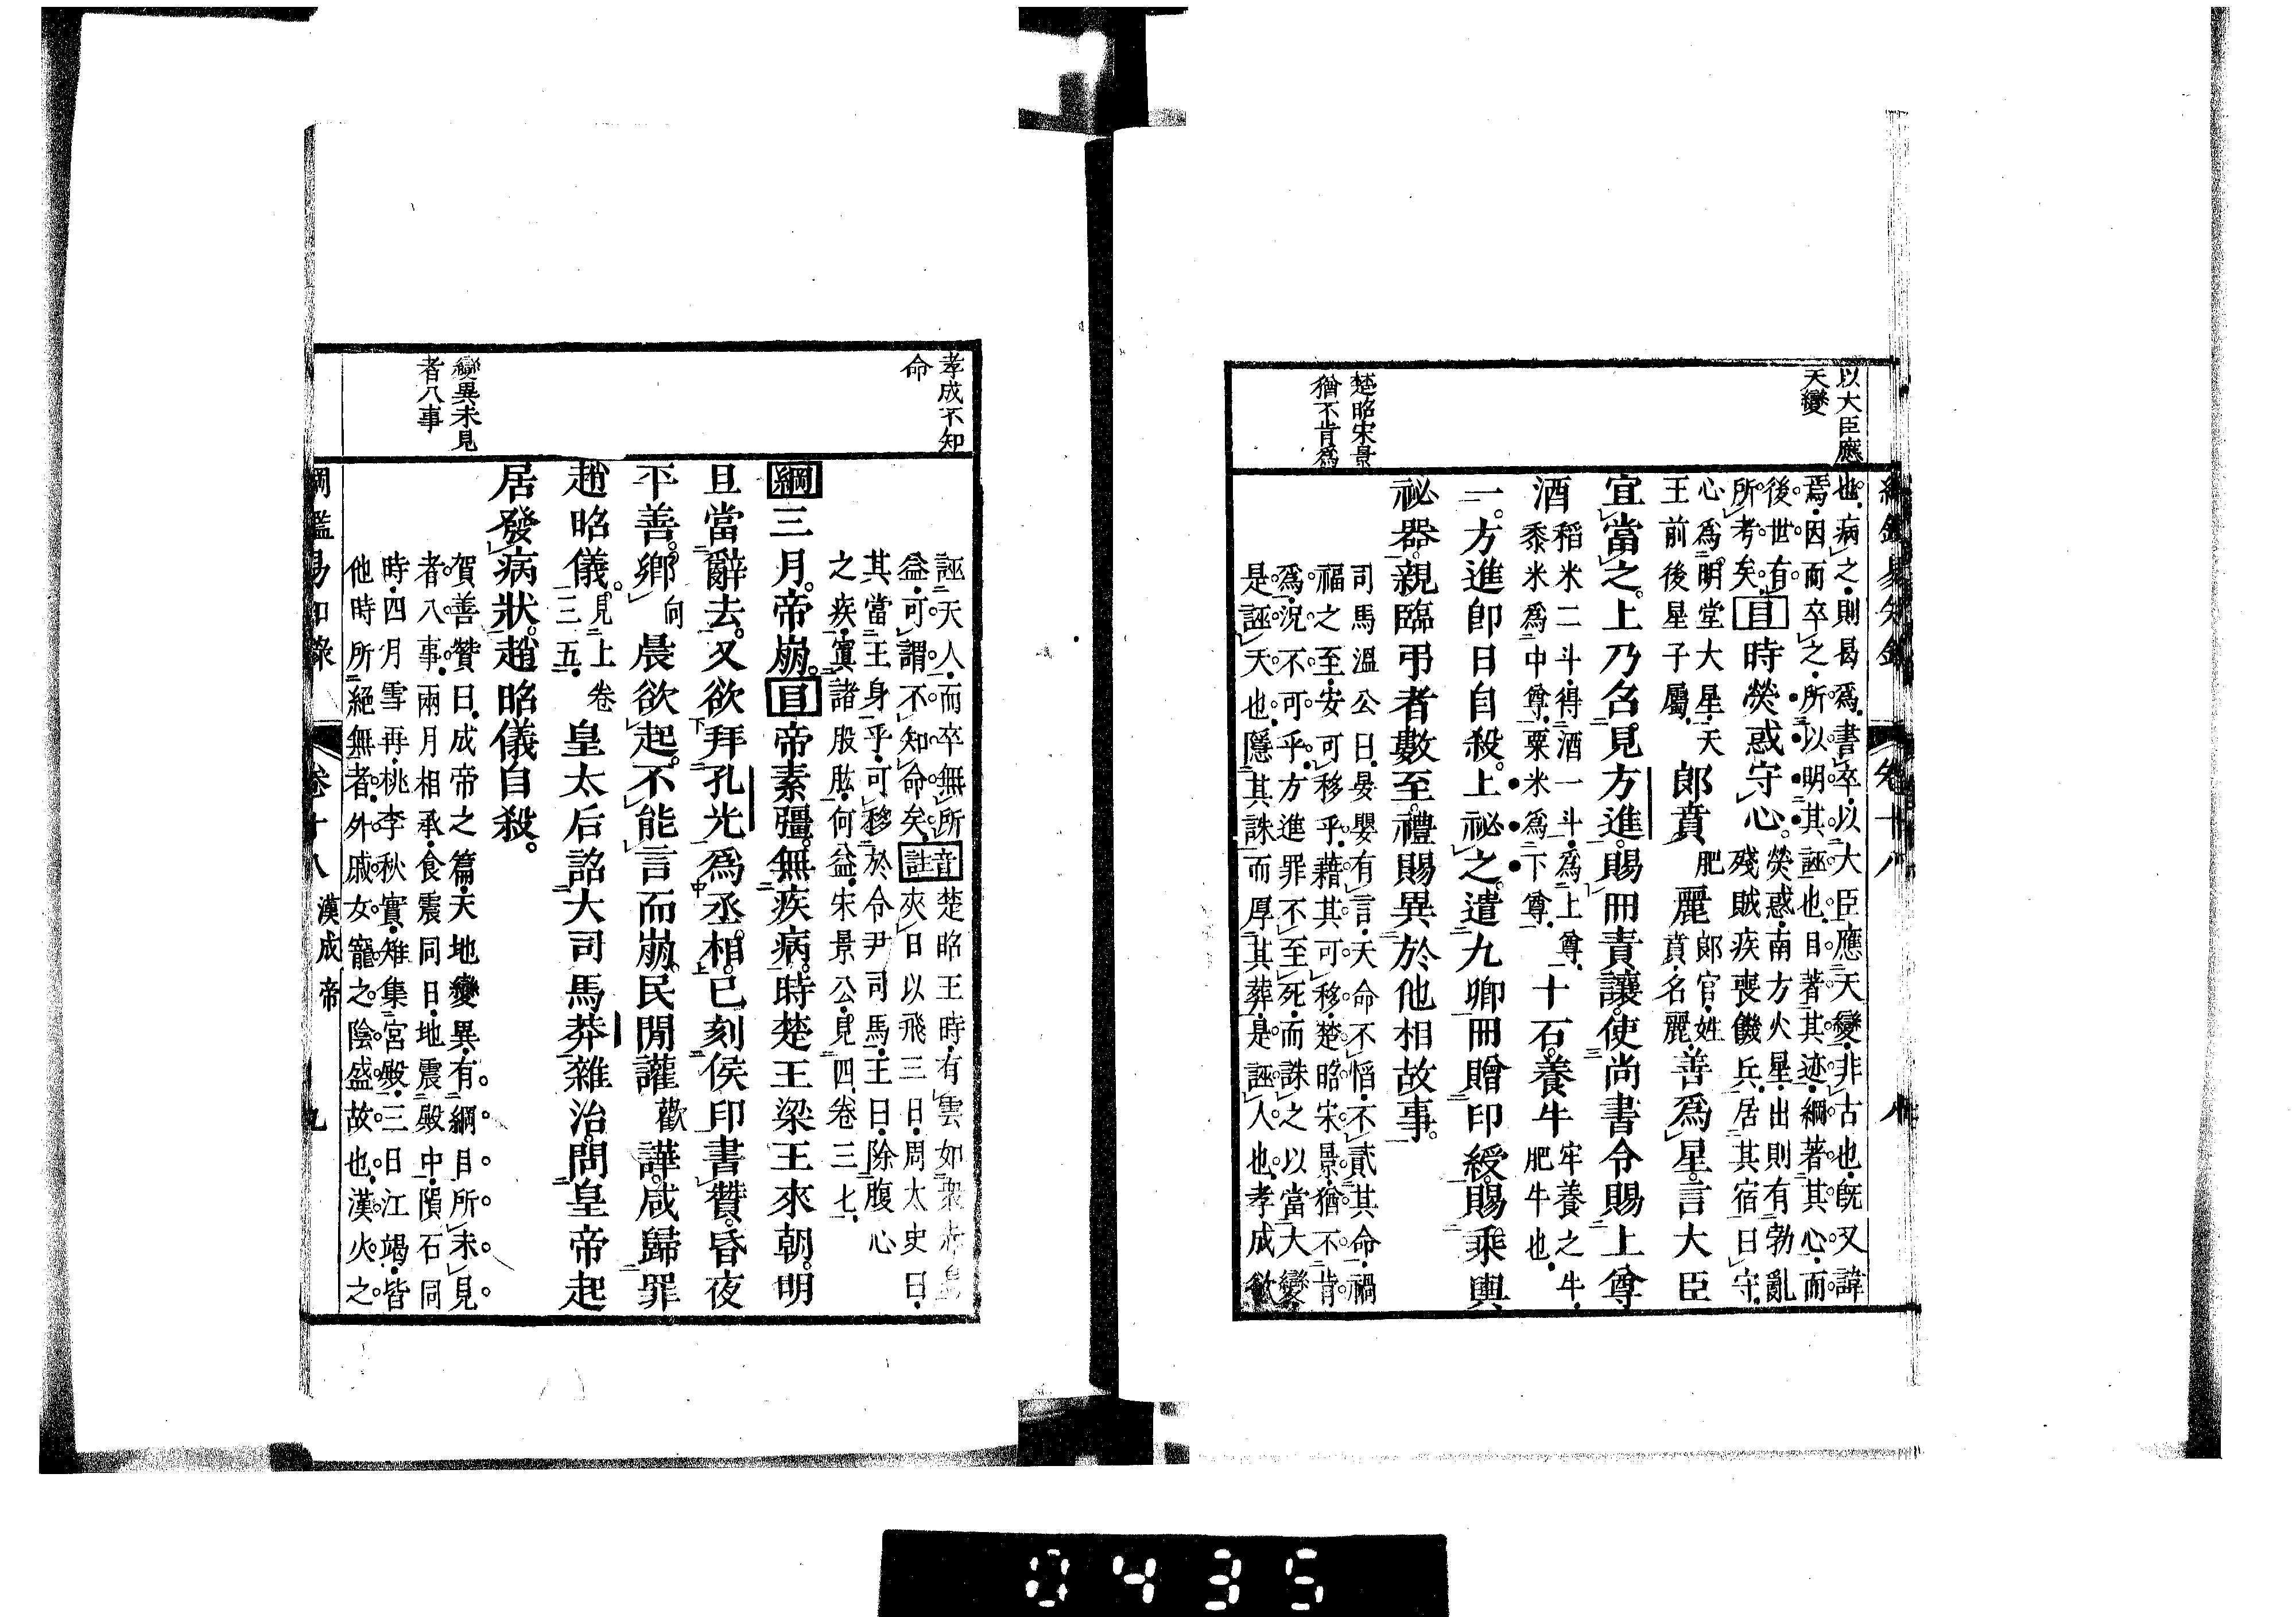 以大臣應
天變
楚昭宋景
猶不肯爲
綱鑑易知錄 卷十八 八
也病之則曷爲書卒以大臣應天變非古也旣又諱
焉因而卒之所以明其誣也目著其迹綱著其心而
後世有
所考矣目時熒惑守心熒惑南方火星出則有勃亂
殘賊疾喪饑兵居其宿曰守
心爲明堂大星天
王前後星子屬郎賁肥麗郞官姓
賁名麗善爲星言大臣
宜當之上乃召見方進賜冊責讓使尚書令賜上尊
酒稻米二斗得酒一斗爲上尊
黍米爲中尊粟米爲下尊十石養牛牢養之牛
肥牛也
一方進即日自殺上祕之遣九卿冊贈印綬賜乘輿
祕器親臨弔者數至禮賜異於他相故事
司馬溫公曰晏嬰有言天命不慆不貳其命禍
福之至安可移乎藉其可移楚昭宋景猶不肯
爲況不可乎方進罪不至死而誅之以當大變
是誣天也隱其誅而厚其葬是誣人也孝成欲
孝成不知
命
變異未見
者八事
誣天人而卒無所
益可謂不知命矣音
註楚昭王時有雲如衆
夾日以飛三日周太史曰
其當王身乎可移於令尹司馬王曰除腹心
之疾寘諸股肱何益宋景公見四卷三七
綱三月帝崩目帝素彊無疾病時楚王梁王來朝明
旦當辭去又欲拜孔光爲丞相已刻侯印書贊昏夜
平善鄉向晨欲起不能言而崩民閒讙歡譁咸歸罪
趙昭儀見上卷
三五皇太后詔大司馬莽雜治問皇帝起
居發病狀趙昭儀自殺
賀善贊曰成帝之篇天地變異有綱目所未見
者八事兩月相承食震同日地震殿中隕石同
時四月雪再桃李秋實雉集宮殿三日江竭皆
他時所絕無者外戚女寵之陰盛故也漢火之
綱鑑易知錄 卷十八 漢成帝 九
0435